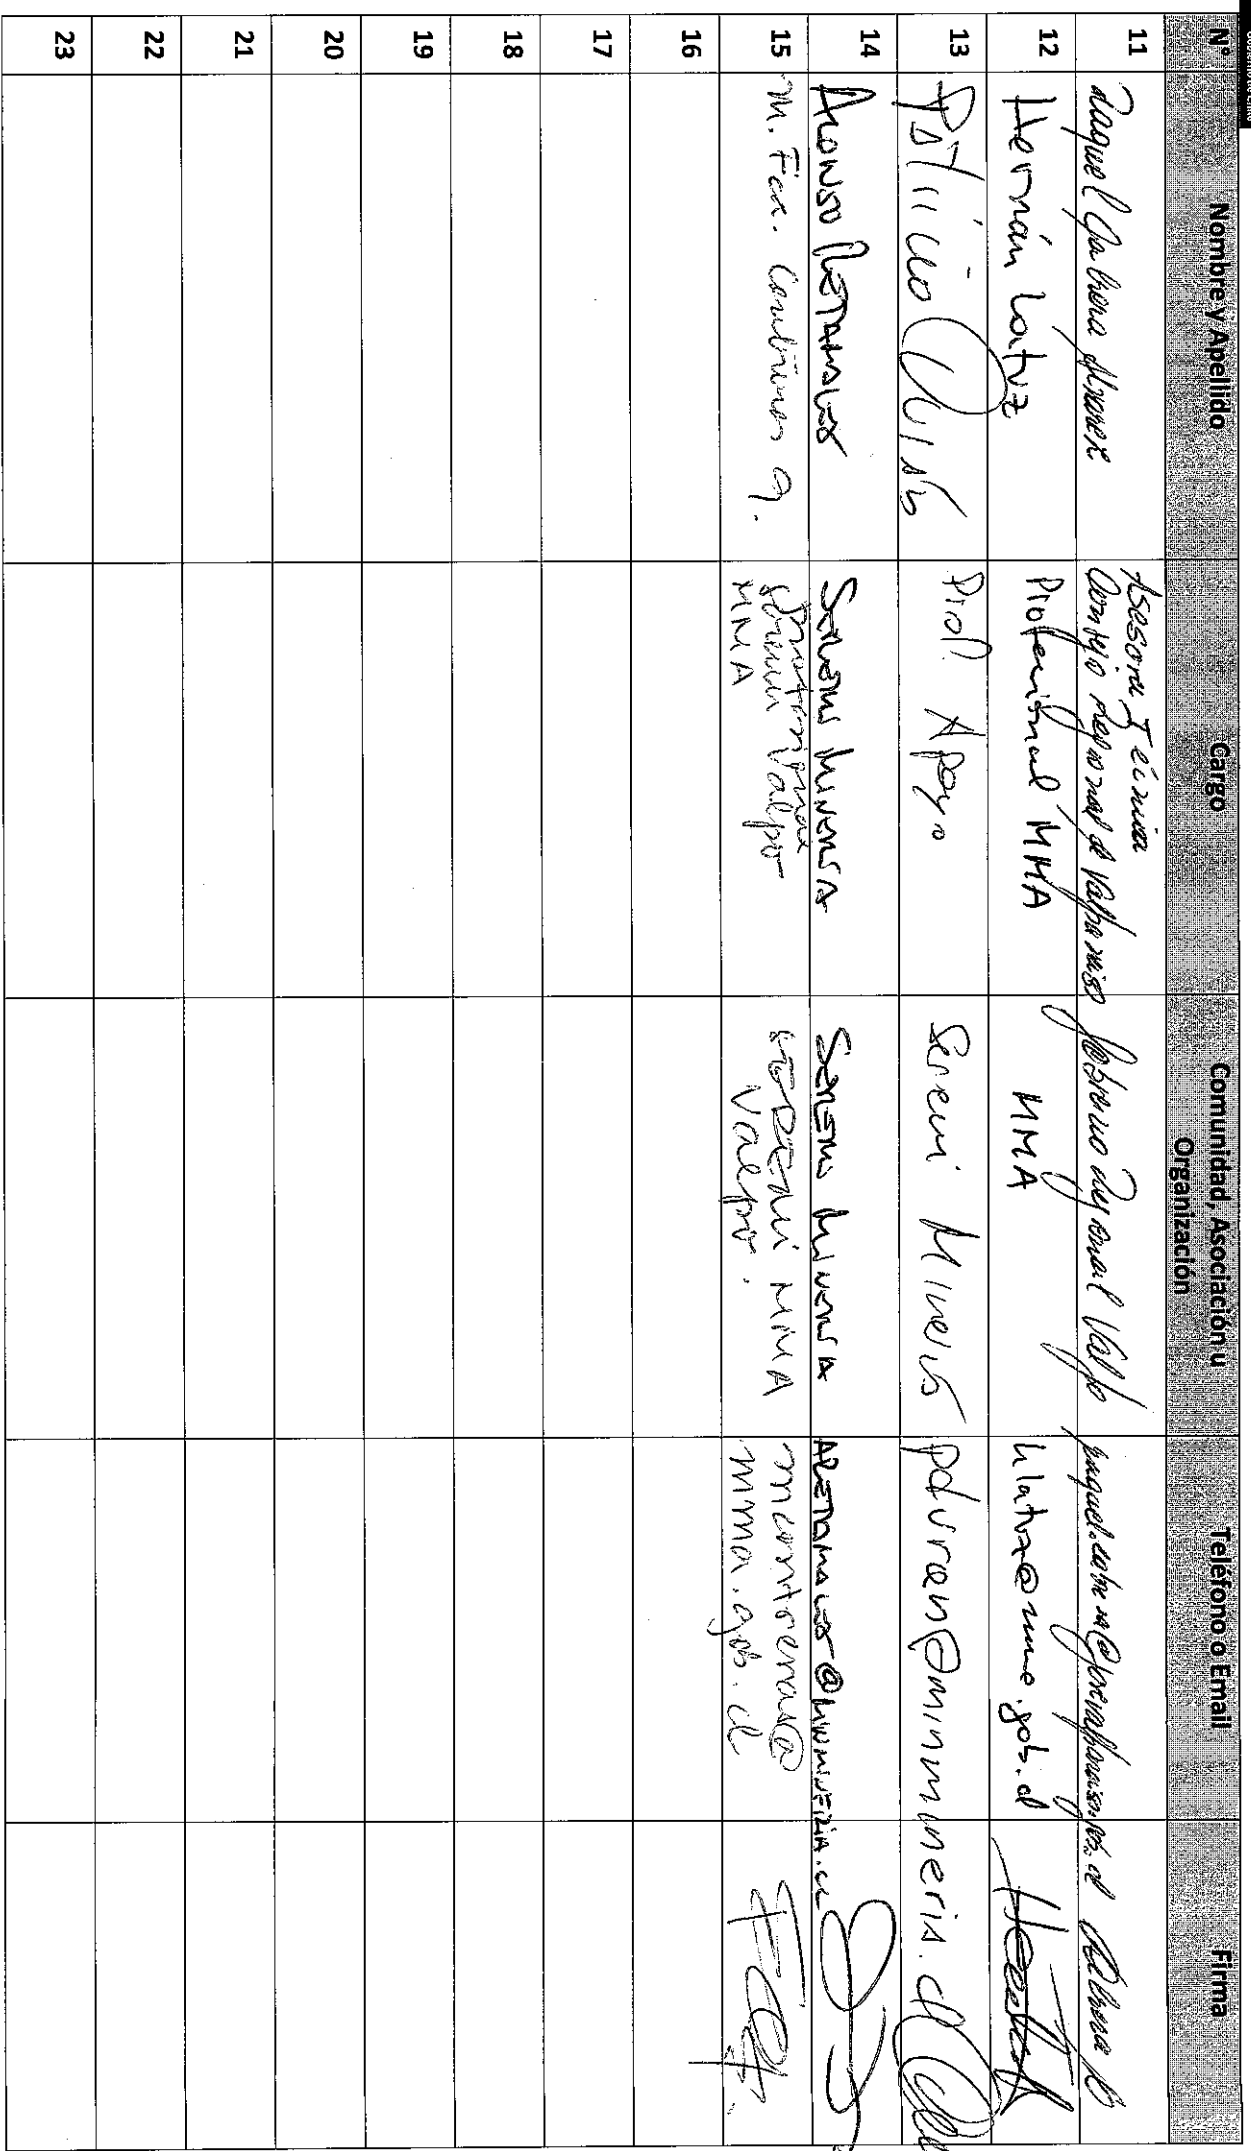 N° Nombre y Apellido Cargo Comunidad, Asociación u Organización Teléfono o Email Firma
11 Raquel Cabrera Asesora Técnica Consejo Regional de Valparaiso Gobierno Regional Valpo
12 Hernán Latuz Profesional MMA MMA hlatuz@mma.gob.cl
13 Patricio Prof. Apoyo Seremi Mineria pduran@minmineria.cl
14 ALONSO RETAMALES SEREMI MINERIA SEREMI MINERIA ARETAMALES@MINMINERIA.CL
15 M. Fca. Contreras Seremi Valpo MMA SEREMI MMA Valpo. mcontreras@mma.gob.cl
16
17
18
19
20
21
22
23